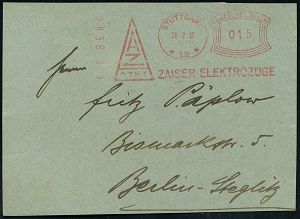 STUTTGART
12
28.2.30
DEUTSCHES REICH
015
AZET
ZAISER ELEKTROZÜGE
Herrn
Fritz Päplow
Bismarckstr. 5.
Berlin-Steglitz